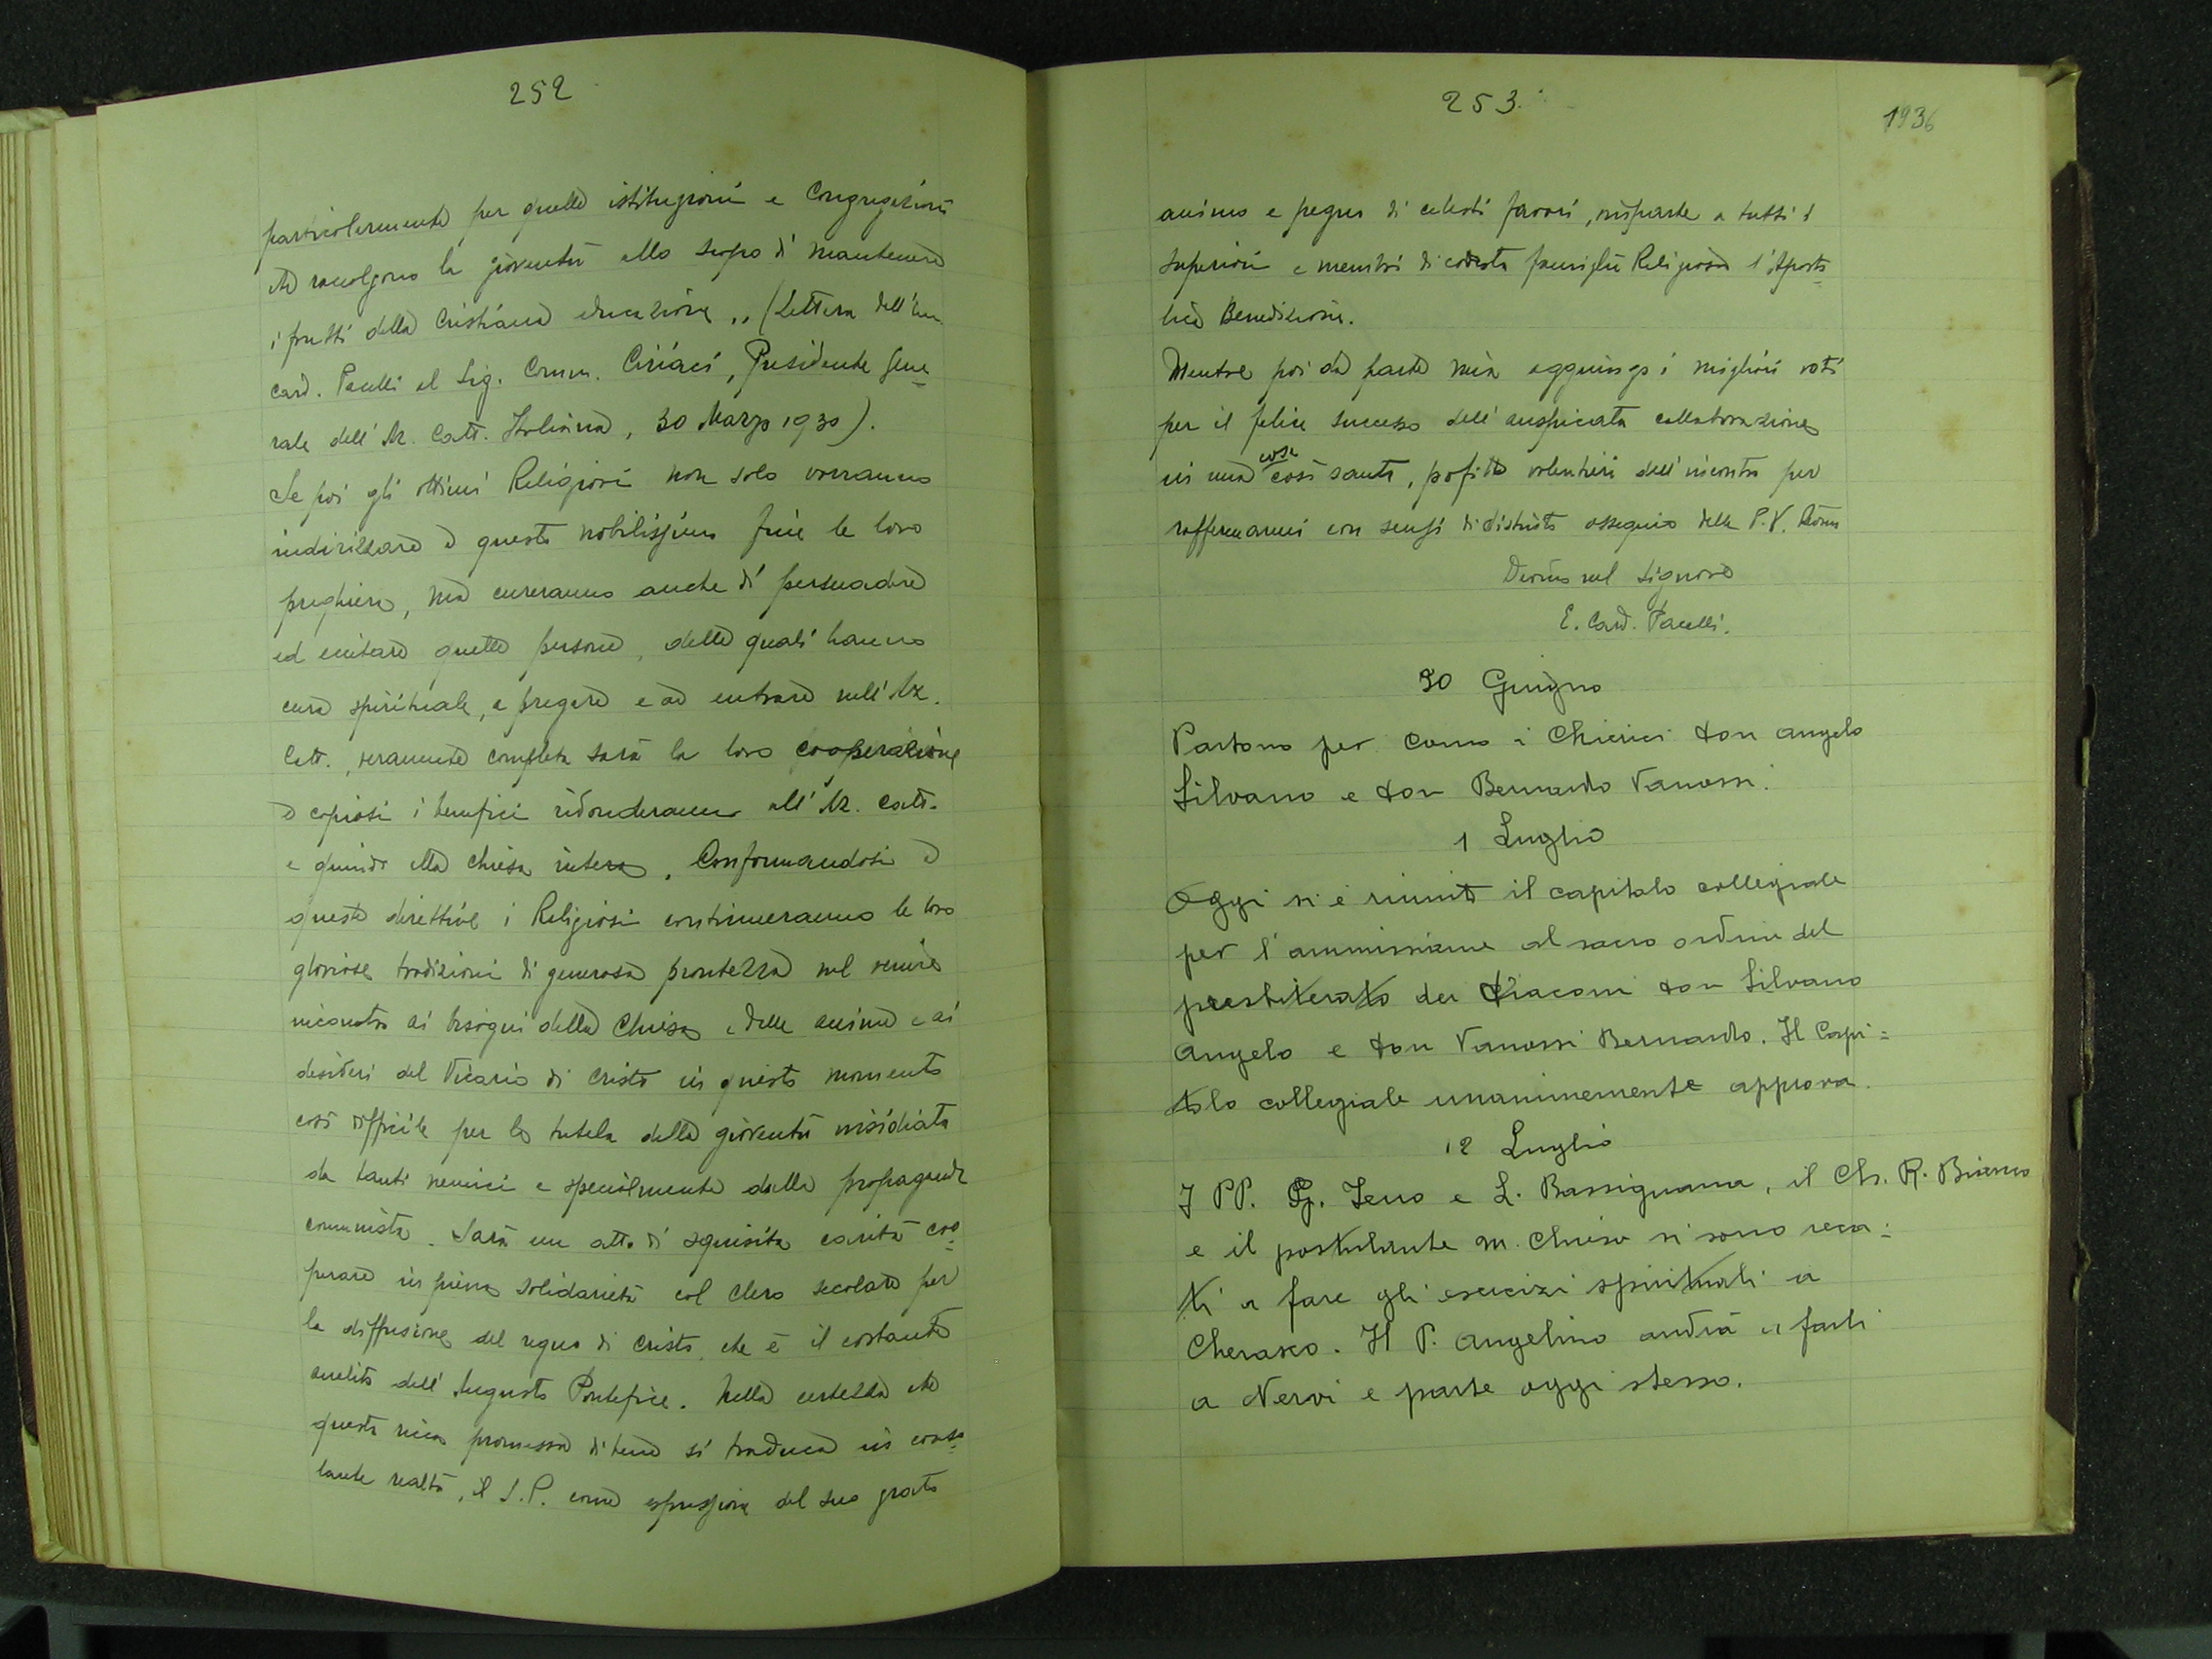 252
particolarmente per quelle istituzioni e Congregazioni
che raccolgono la gioventù allo scopo di mantenere
i frutti della Cristiana educazione „ (Lettera dell'Em.
card. Pacelli al Sig. Comm. Ciriaci, Presidente Gene-
rale dell'Az. Catt. Italiana, 30 Marzo 1930).
Se poi gli ottimi Religiosi non solo vorranno
indirizzare a questo nobilissimo fine le loro
preghiere, ma cureranno anche di persuadere
ed eccitare quelle persone, delle quali hanno
cura spirituale, a pregare e ad entrare nell'Az.
Catt., veramente completa sarà la loro cooperazione
e copiosi i benefici ridonderanno all'Az. Catt.
e quindi alla Chiesa intera. Conformandosi a
queste direttive i Religiosi continueranno le loro
gloriose tradizioni di generosa prontezza nel venire
incontro ai bisogni della Chiesa e delle anime e ai
desideri del Vicario di Cristo in questo momento
così difficile per la tutela della gioventù insidiata
da tanti nemici e specialmente dalla propaganda
comunista. Sarà un atto di squisita carità coo-
perare in piena solidarietà col clero secolare per
la diffusione del regno di Cristo, che è il costante
anelito dell'Augusto Pontefice. Nella certezza che
questa ricca promessa di bene si traduca in conso-
lante realtà, il S.P. come espressione del suo grato
253.
1936
animo e pegno di celesti favori, imparte a tutti i
Superiori e membri di codesta famiglia Religiosa l'Aposto-
lica Benedizione.
Mentre poi da parte mia aggiungo i migliori voti
per il felice successo dell'auspicata collaborazione
cosa
in una così santa, profitto volentieri dell'incontro per
raffermarmi con sensi di distinto ossequio della P.V. Rev.ma
Dev.mo nel Signore
E. Card. Pacelli.
30 Giugno
Partono per Como i Chierici don Angelo
Silvano e don Bernardo Vanossi.
1 Luglio
Oggi si è riunito il capitolo collegiale
per l'ammissione al sacro ordine del
presbiterato dei diaconi don Silvano
Angelo e don Vanossi Bernardo. Il Capi=
tolo collegiale unanimemente approva.
12 Luglio
I PP. G. Zeno e L. Bassignana, il Ch. R. Bianco
e il postulante M. Chiesa si sono reca=
ti a fare gli esercizi spirituali a
Cherasco. Il P. Angelino andrà a farli
a Nervi e parte oggi stesso.